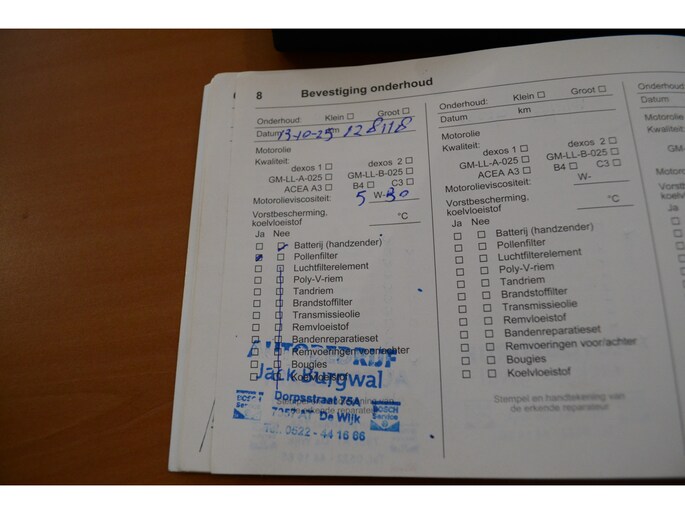 8 Bevestiging onderhoud
Onderhoud: Klein ☐ Groot ☐
Datum 13-10-25 km 128118
Motorolie
Kwaliteit: dexos 1 ☐ dexos 2 ☐
GM-LL-A-025 ☐ GM-LL-B-025 ☐
ACEA A3 ☐ B4 ☐ C3 ☐
Motorolieviscositeit: 5 W-30
Vorstbescherming,
koelvloeistof °C
Ja Nee
Batterij (handzender)
Pollenfilter
Luchtfilterelement
Poly-V-riem
Tandriem
Brandstoffilter
Transmissieolie
Remvloeistof
Bandenreparatieset
Remvoeringen voor/achter
Bougies
Koelvloeistof
AUTOBEDRIJF
Jack Burgwal
Dorpsstraat 75A
De Wijk
Tel. 0522 - 44 16 66
BOSCH
Service
Onderhoud: Klein ☐ Groot ☐
Datum km
Motorolie
Kwaliteit: dexos 1 ☐ dexos 2 ☐
GM-LL-A-025 ☐ GM-LL-B-025 ☐
ACEA A3 ☐ B4 ☐ C3 ☐
Motorolieviscositeit: W-
Vorstbescherming,
koelvloeistof °C
Ja Nee
Batterij (handzender)
Pollenfilter
Luchtfilterelement
Poly-V-riem
Tandriem
Brandstoffilter
Transmissieolie
Remvloeistof
Bandenreparatieset
Remvoeringen voor/achter
Bougies
Koelvloeistof
Stempel en handtekening van
de erkende reparateur
Onderhoud:
Datum
Motorolie
Kwaliteit:
GM-LL-A
Ja